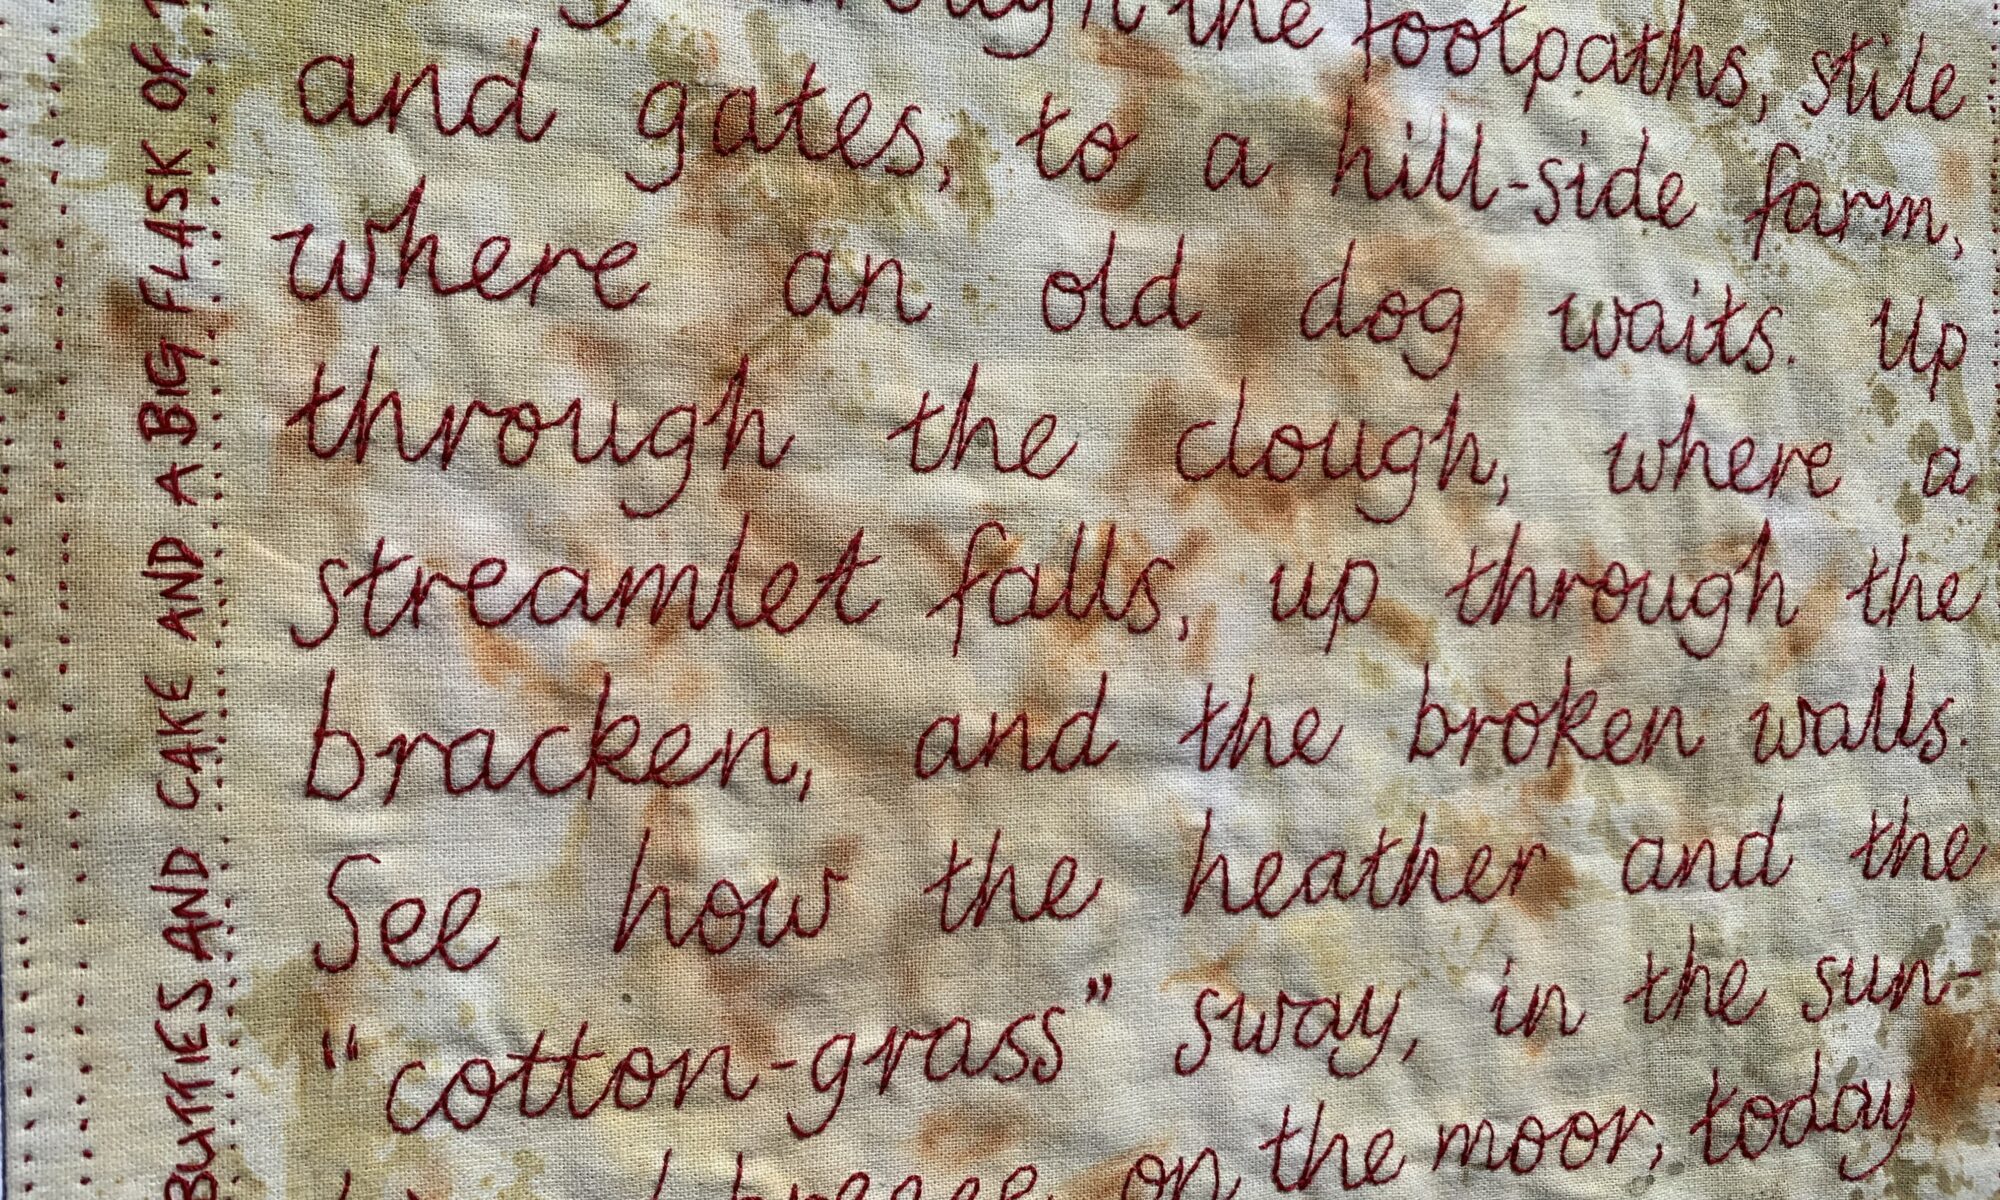 through the footpaths, stile
and gates, to a hill-side farm,
where an old dog waits. Up
through the clough, where a
streamlet falls, up through the
bracken, and the broken walls.
See how the heather and the
"cotton-grass" sway, in the sun-
on the moor, today
BUTTIES AND CAKE AND A BIG FLASK OF